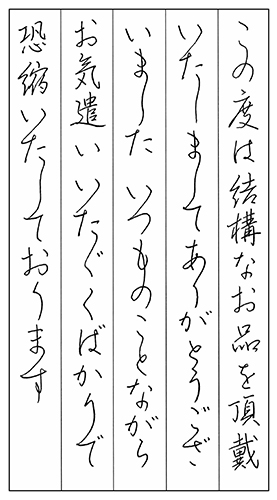 この度は結構なお品を頂戴
いたしましてありがとうござ
いました いつものことながら
お気遣いいたゞくばかりで
恐縮いたしております